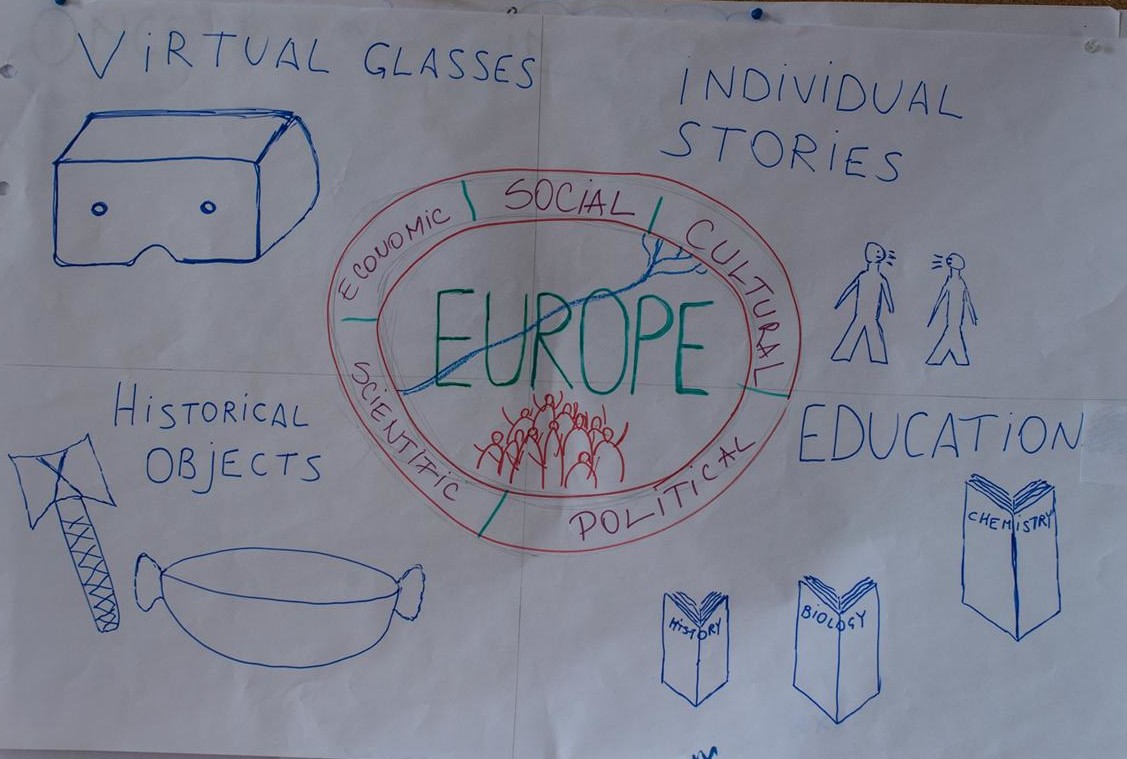 ViRTUAL GLASSES
iNDiViDUAL
STORiES
ECONOMIC
SOCiAL
CULTURAL
EUROPE
SCIENTIFIC
POLiTiCAL
HiSTORiCAL
OBjECTS
EDUCATiON
CHEMiSTRY
HiSTORY
BiOLOGY